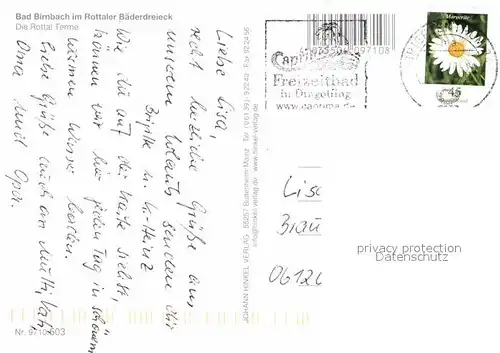 Bad Birnbach im Rottaler Bäderdreieck
Die Rottal Terme
Liebe Lisa,
recht herzliche Grüße aus
unserem Urlaub senden dir
Brigitte u. K.-Heinz
Wie du auf der Karte siehst,
können wir hier jeden Tag in schönem
warmen Wasser baden.
Liebe Grüße auch an Mutti, Vati
Oma und Opa.
Nr. 9710 603
JOHANN HINKEL VERLAG 55257 Budenheim-Mainz Tel. (0 61 39) 9 22 42 Fax 9 22 4 56
info@hinkel-verlag.de www.hinkel-verlag.de
097108
Caprima
Freizeitbad
in Dingolfing
www.caprima.de
Margerite
45
Lisa
Brau
privacy protection
Datenschutz
06120